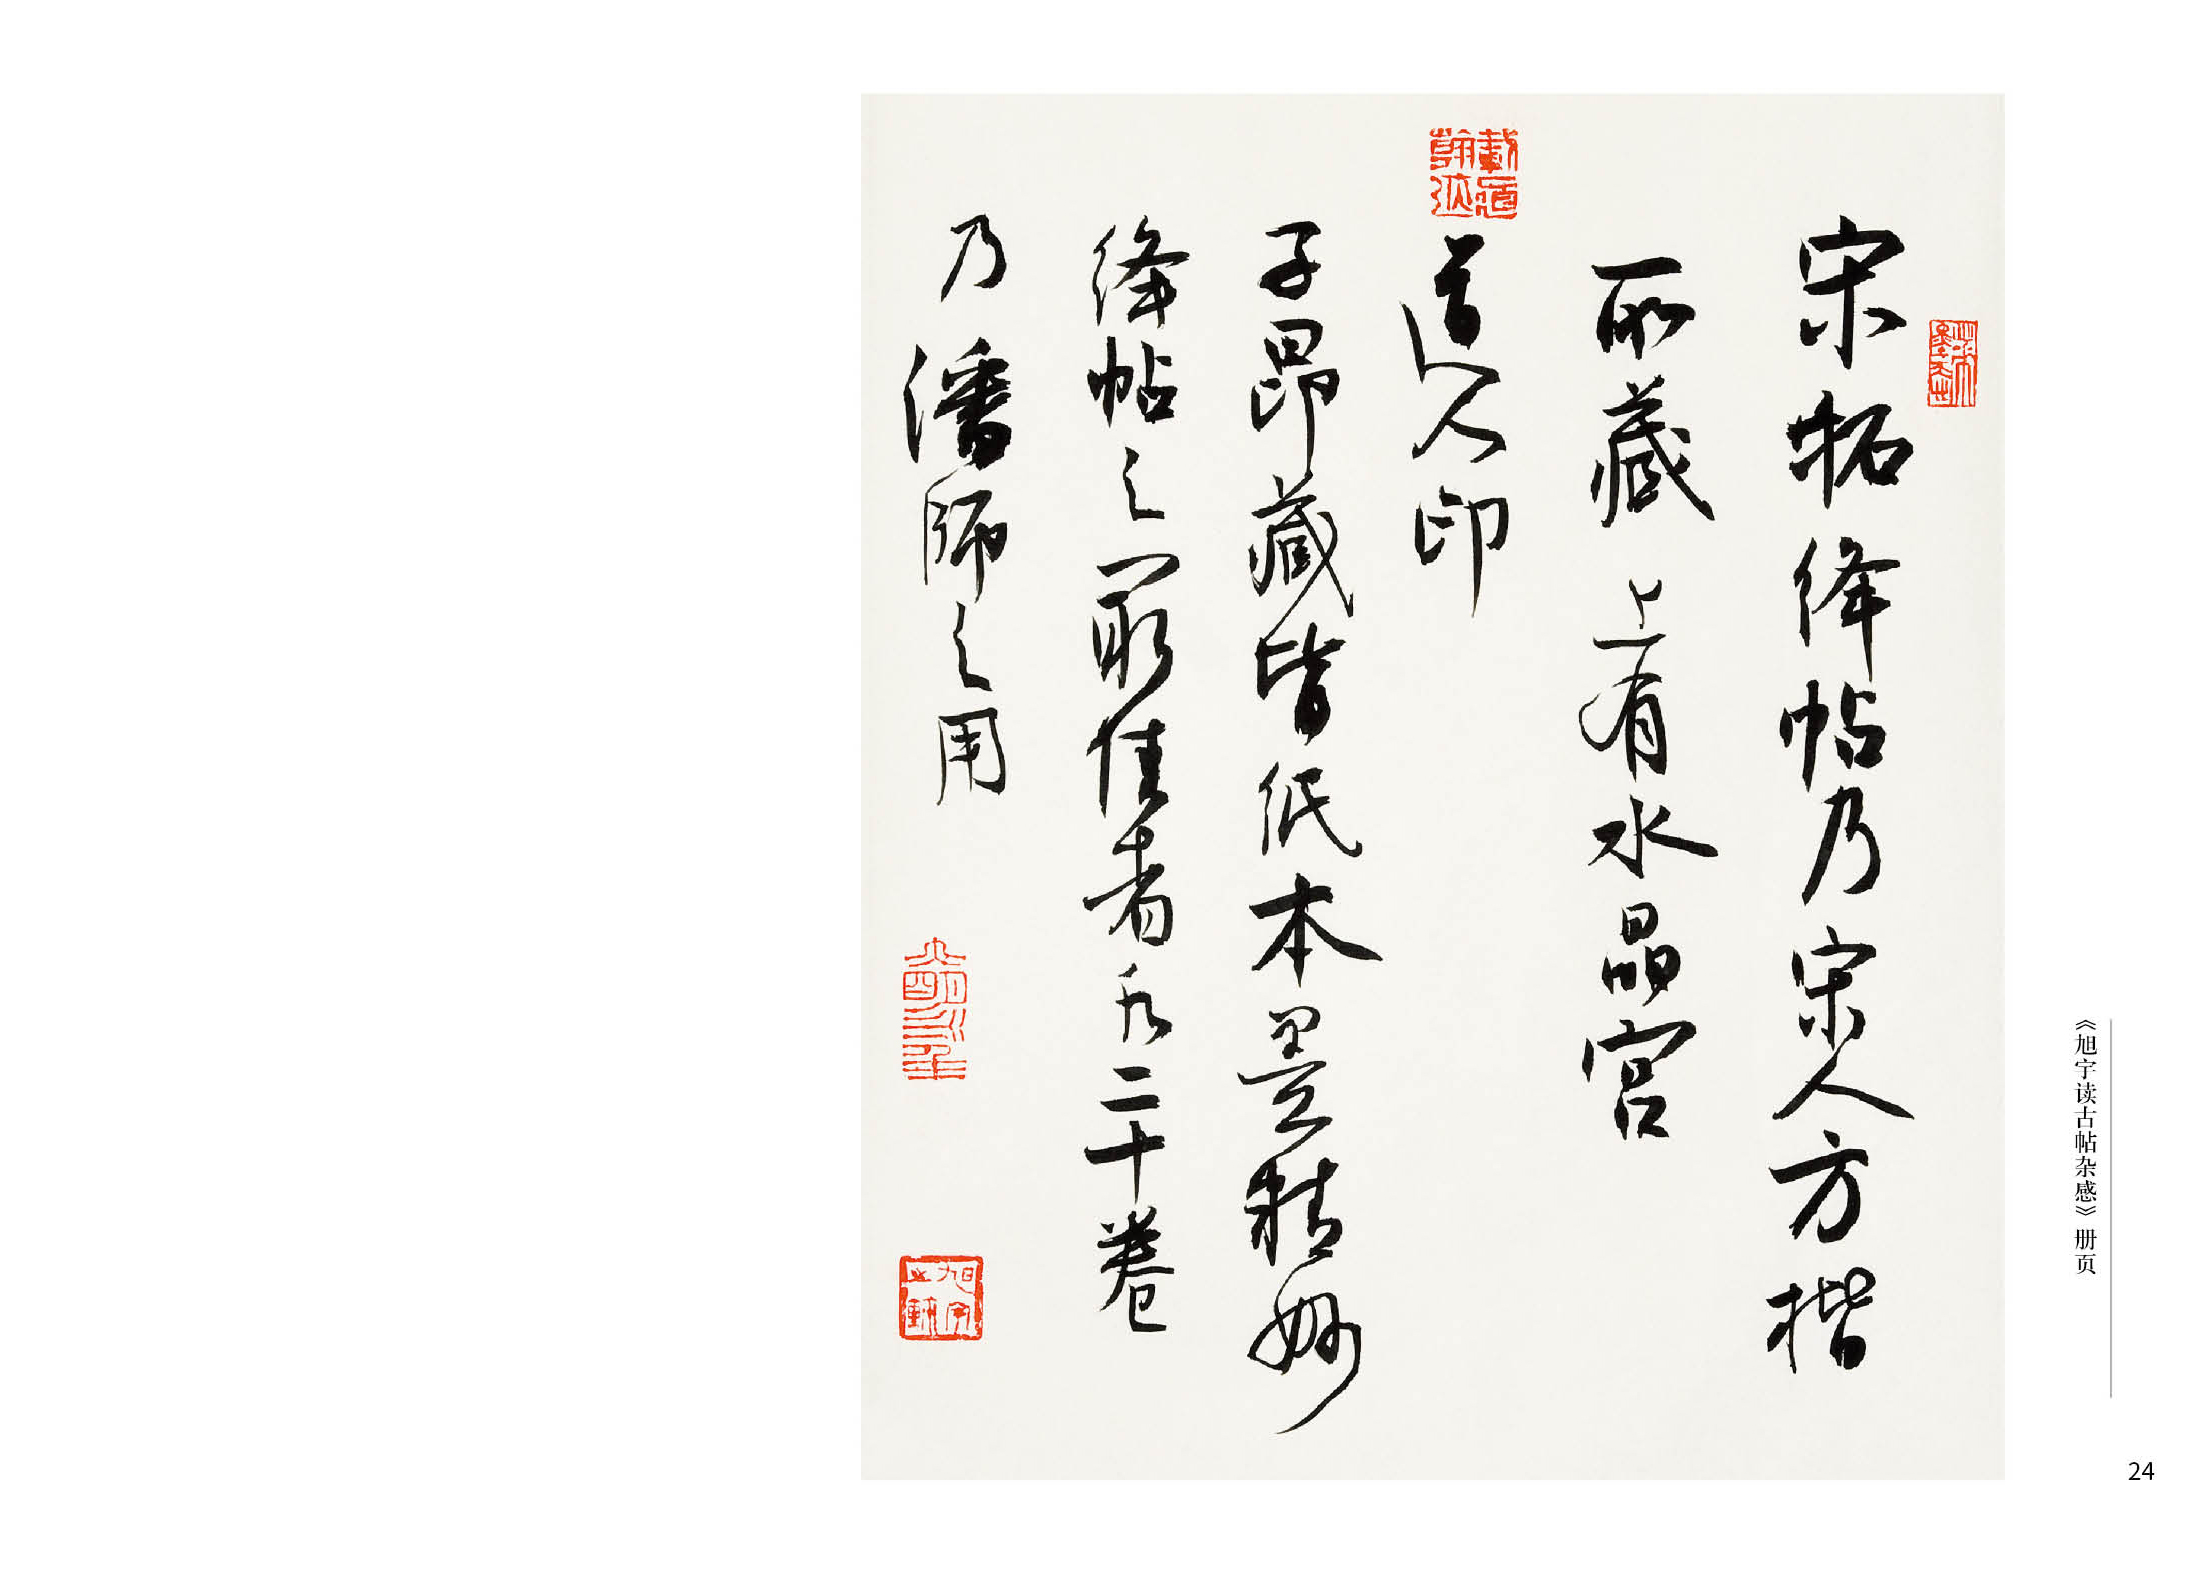 宋拓绛帖乃宋人方楷
所藏上有水晶宫
道人印
子昂藏皆纸本墨精妙
绛帖之最佳者凡二十卷
乃潘师之用
《旭宇读古帖杂感》册页
24